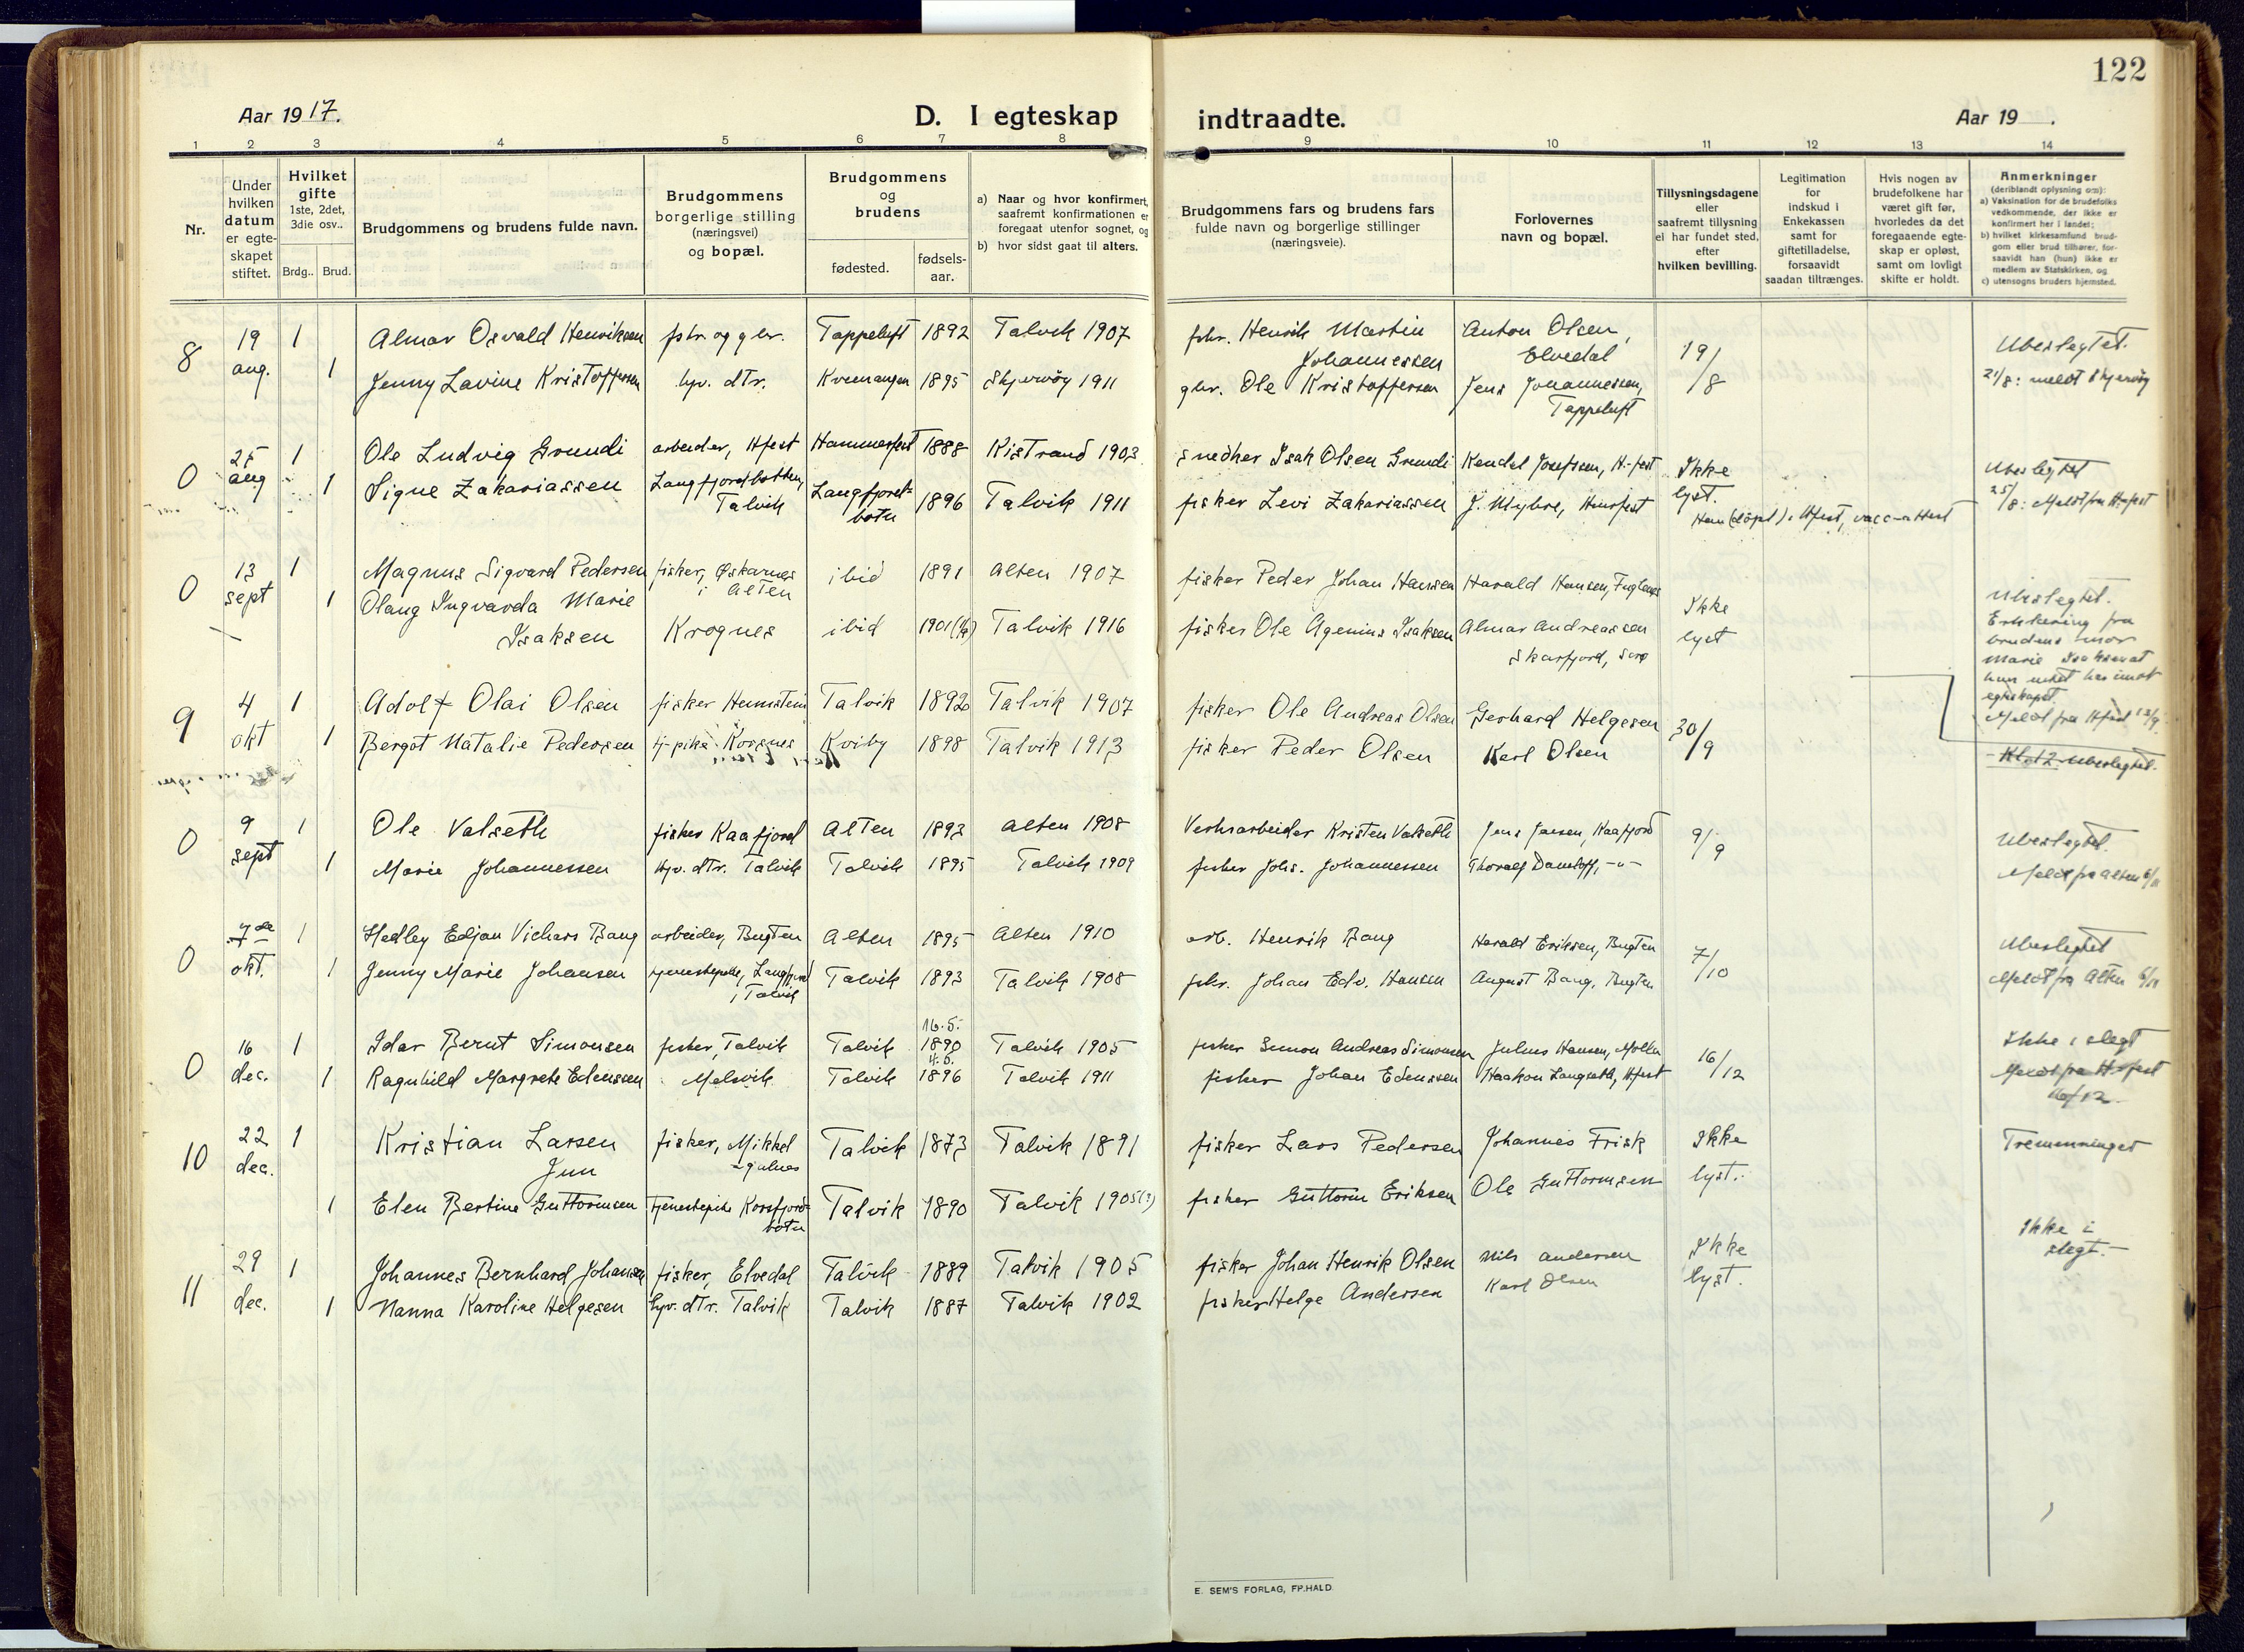 122
Aar 1917.
D. I egteskap indtraadte.
Aar 19 .
1 2 3 4 5 6 7 8 9 10 11 12 13 14
Nr.
Under hvilken datum er egteskapet stiftet.
Hvilket gifte 1ste, 2det, 3die osv..
Brdg.. Brud.
Brudgommens og brudens fulde navn.
Brudgommens borgerlige stilling (næringsvei) og bopæl.
Brudgommens og brudens
fødested. fødsels-aar.
a) Naar og hvor konfirmert, saafremt konfirmationen er foregaat utenfor sognet, og
b) hvor sidst gaat til alters.
Brudgommens fars og brudens fars fulde navn og borgerlige stillinger (næringsveie).
Forlovernes navn og bopæl.
Tillysningsdagene eller saafremt tillysning ei har fundet sted, efter hvilken bevilling.
Legitimation for indskud i Enkekassen samt for giftetilladelse, forsaavidt saadan tiltrænges.
Hvis nogen av brudefolkene har været gift før, hvorledes da det foregaaende egteskap er opløst, samt om lovligt skifte er holdt.
Anmerkninger
(deriblandt oplysning om):
a) Vaksination for de brudefolks vedkommende, der ikke er konfirmert her i landet;
b) hvilket kirkesamfund brudgom eller brud tilhører, forsaavidt han (hun) ikke er medlem av Statskirken, og
c) utensogns bruders hjemsted.
8 19 aug. 1 Almar Osvald Henriksen fskr. og gbr. Tappeluft 1892 Talvik 1907 fskr. Henrik Martin Johannessen Anton Olsen, Elvedal 19/8 Ubeslegtet.
1 Jenny Lavine Kristoffersen hjv. dtr. Kvænangen 1895 Skjervøy 1911 gbr. Ole Kristoffersen Jens Johannessen, Tappeluft 21/8: meldt Skjervøy
0 25 aug 1 Ole Ludvig Grundi arbeider, Hfest Hammerfest 1888 Kistrand 1903 snedker Isak Olsen Grundi Kendel Josefsen, H-fest Ikke lyst. Ubeslegtet
1 Signe Zakariassen Langfjordbotten, Talvik Langfjordbotn 1896 Talvik 1911 fisker Levi Zakariassen J. Myhre, Hmrfest 25/8: Meldt fra H-fest
Hem (døpt) i Hfest, vacc-attest
0 13 sept 1 Magnus Sigvard Pedersen fisker, Øskarnes i Alten ibid 1891 Alten 1907 fisker Peder Johan Hansen Harald Hansen, Fuglenes Ikke lyst Ubeslegtet.
1 Olaug Ingvarda Marie Isaksen Krognes ibid 1901 Talvik 1916 fisker Ole Agenius Isaksen Almar Andreassen Skarfjord, Sørø
Erklæring fra
brudens mor
Marie Isaksen at
hun intet har imot
egteskapet.
Meldt fra Hfest 13/9.
9 4 okt 1 Adolf Olai Olsen fisker Hemstein Talvik 1892 Talvik 1907 fisker Ole Andreas Olsen Gerhard Helgesen 30/9
1 Bergot Natalie Pedersen tj-pike Korsnes Kviby 1898 Talvik 1913 fisker Peder Olsen Karl Olsen Kl. 12 Ubeslegtet.
0 9 sept 1 Ole Valseth fisker Kaafjord Alten 1893 Alten 1908 Verksarbeider Kristen Valseth Jens Jansen, Kaafjord 9/9 Ubeslegtet.
1 Marie Johannessen Hjv. dtr. Talvik Talvik 1895 Talvik 1909 fisker Johs. Johannessen Thoralf Daneloff, -"- Meldt fra Alten 6/11
0 7de okt. 1 Hedley Edjan Vichars Bang arbeider, Bugten Alten 1895 Alten 1910 arb. Henrik Bang Harald Eriksen, Bugten 7/10 Ubeslegtet
1 Jenny Marie Johansen tjenestepike, Langfjord i Talvik Talvik 1893 Talvik 1908 fskr. Johan Edv. Hansen August Bang, Bugten Meldt fra Alten 6/11
0 16 dec. 1 Idar Bernt Simonsen fisker, Talvik Talvik 16.5. 1890 Talvik 1905 fisker Simon Andreas Simonsen Julius Hansen, Molla 16/12 Ikke i slegt
1 Ragnhild Margrete Edenssen Melsvik Talvik 4.5. 1896 Talvik 1911 fisker Johan Edenssen Haakon Langseth, Hfest Meldt fra H-fest 16/12.
10 22 dec. 1 Kristian Larsen Jun fisker, Mikkelgalnes Talvik 1873 Talvik 1891 fisker Lars Pedersen Johannes Frisk Ikke lyst. Tremenninger
1 Elen Bertine Guttormsen Tjenestepike Korsfjordbotn Talvik 1890 Talvik 1905(?) fisker Guttorm Eriksen Ole Guttormsen
11 29 dec. 1 Johannes Bernhard Johansen fisker, Elvedal Talvik 1889 Talvik 1905 fisker Johan Henrik Olsen Nils Andersen Ikke lyst. Ikke i slegt.
1 Nanna Karoline Helgesen hjv. dtr. Talvik Talvik 1887 Talvik 1902 fisker Helge Andersen Karl Olsen
E. SEM'S FORLAG, FR.HALD